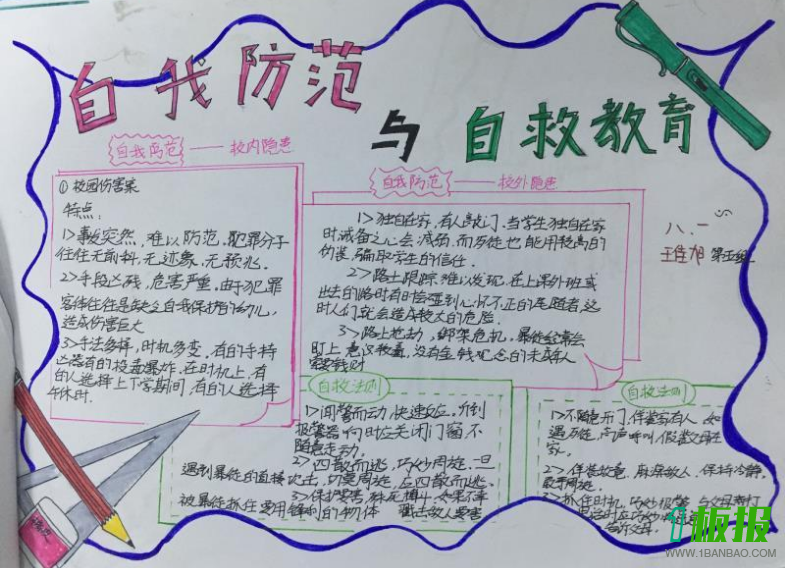 自我防范
与自救教育
自我防范——校内隐患
①校园伤害案
特点：
1>事发突然，难以防范，犯罪分子
往往无前科，无迹象，无预兆。
2>手段凶残，危害严重，由于犯罪
客体往往是缺乏自我保护的幼儿，
造成伤害巨大
3>手法多样，时机多变，有的手持
凶器有的投毒爆炸，在时机上，有
的人选择上下学期间，有的人选择
午休时.
自我防范——校外隐患
1>独自在家，有人敲门，当学生独自在家
时戒备之心会减弱，而歹徒也能用较高的
伪装，骗取学生的信任.
2>路上跟踪难以发现，在上课外班或
出去的路时有时会碰到心怀不正的尾随者，这
时人们就会造成较大的危险.
3>路上抢劫，绑架危机，暴徒经常会
盯上意识较差，没有金钱观念的未成年人
索要钱财
八.一
王佳旭 第五组
自救法则
1>闻警而动，快速反应，听到
报警器何时应关闭门窗，不
随意走动.
2>四散而逃，巧妙周旋，一旦
遇到暴徒的直接攻击，切莫周旋，应四散而逃.
3>保护要害，殊死搏斗，如果不幸
被暴徒抓住 要用锋利的物体 戳击敌人要害
自救法则
1>不随意开门，伴装家有人，如
遇歹徒，高声呼叫，假装父母在
家.
2>伴装故意，麻痹敌人，保持冷静，
3>抓住时机，巧妙报警
板报
WWW.1BANBAO.COM